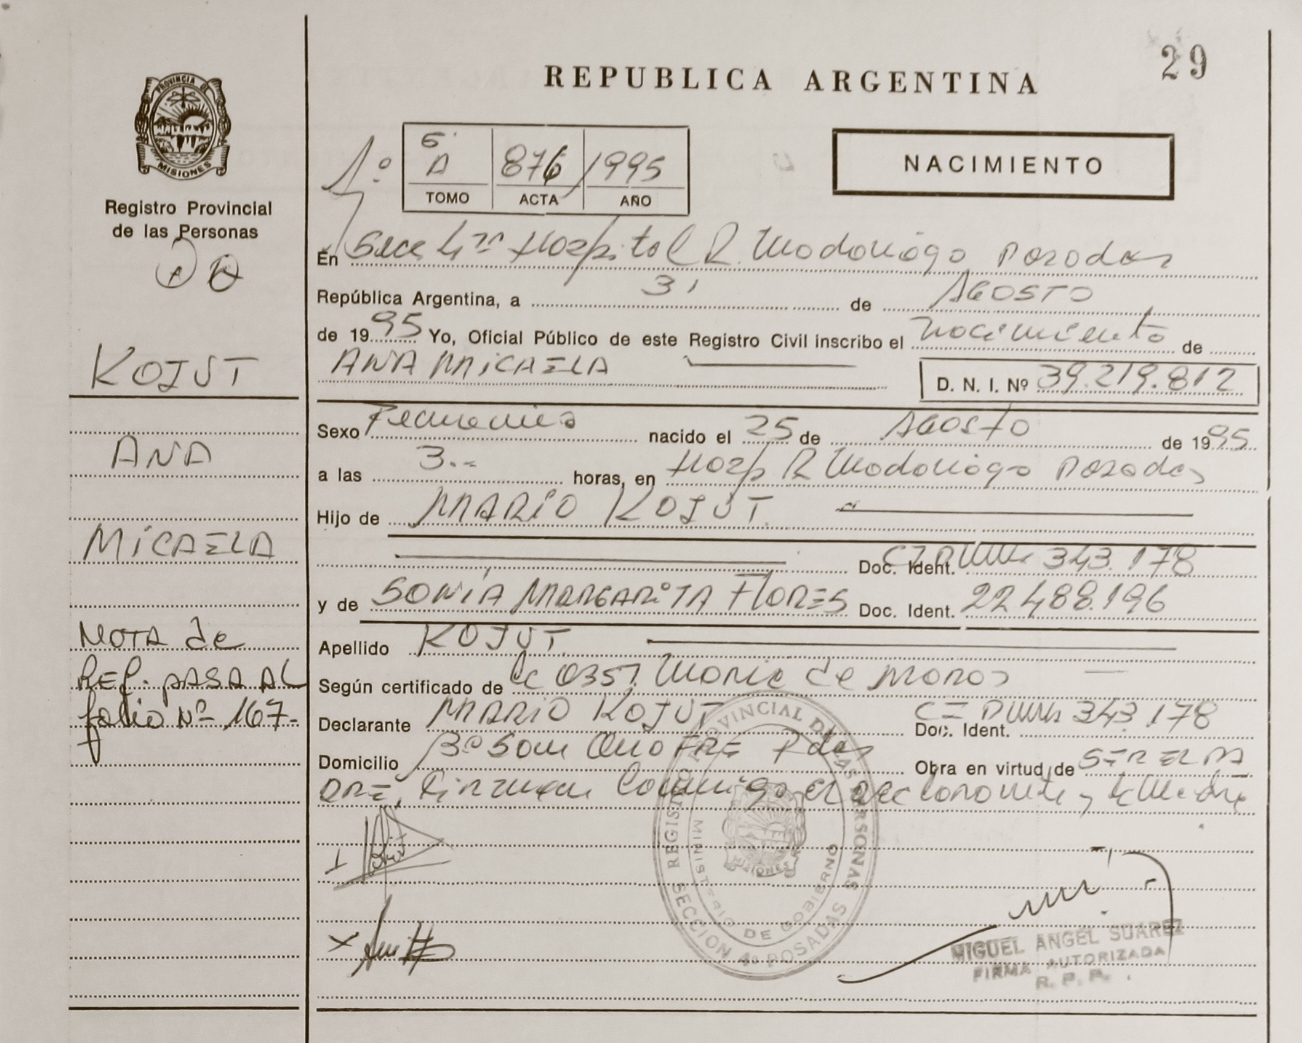 29
REPUBLICA ARGENTINA
PROVINCIA DE MISIONES
Registro Provincial
de las Personas
1º
6º A 876 1995
TOMO ACTA AÑO
NACIMIENTO
En Secc 4ta Hospital R. Madariaga Posadas
República Argentina, a 31 de AGOSTO
de 1995 Yo, Oficial Público de este Registro Civil inscribo el nacimiento de
ANA MICAELA
D. N. I. Nº 39.219.812
Sexo Femenino nacido el 25 de AGOSTO de 1995
a las 3.- horas, en Hosp R Madariaga Posadas
Hijo de MARIO KOJUT
Doc. Ident. 343.178
y de SONIA MARGARITA FLORES Doc. Ident. 22.488.196
Apellido KOJUT
Según certificado de de Moros
Declarante MARIO KOJUT Doc. Ident. 343.178
Domicilio Bº San ONOFRE Pdas Obra en virtud de SER EL PA
DRE, Firman Conmigo el declarante y la Madre
KOJUT
ANA
MICAELA
NOTA de
REF. PASA AL
folio Nº 167-
REGISTRO PROVINCIAL DE LAS PERSONAS
MINISTERIO DE GOBIERNO
SECCION 4ª POSADAS
MISIONES
MIGUEL ANGEL SUAREZ
FIRMA AUTORIZADA
R. P. P.